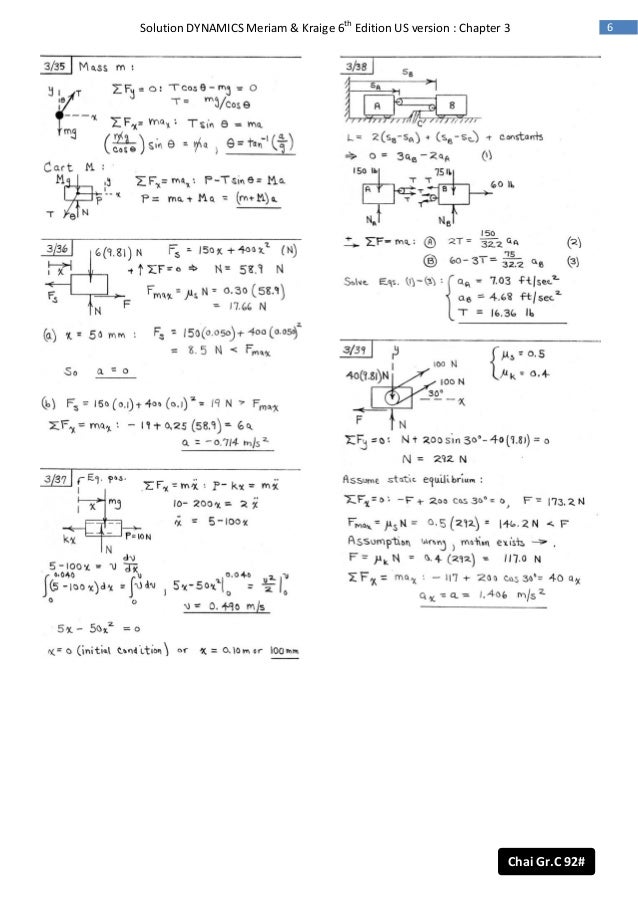 Solution DYNAMICS Meriam & Kraige 6th Edition US version : Chapter 3
6
3/35 Mass m :
y
T
θ
x
mg
ΣFy = 0: T cos θ - mg = 0
T = mg/cos θ
ΣFx = max : T sin θ = ma
(mg/cos θ) sin θ = ma , θ = tan⁻¹(a/g)
Cart M :
Mg
y
x
P
T θ N
ΣFx = max : P - T sin θ = Ma
P = ma + Ma = (m+M)a
3/36
x
6(9.81) N
Fs
F
N
Fs = 150x + 400x² (N)
+↑ ΣF = 0 ⇒ N = 58.9 N
Fmax = μs N = 0.30 (58.9)
= 17.66 N
(a) x = 50 mm : Fs = 150(0.050) + 400(0.050)²
= 8.5 N < Fmax
So a = 0
(b) Fs = 150(0.1) + 400(0.1)² = 19 N > Fmax
ΣFx = max : -19 + 0.25(58.9) = 6a
a = -0.714 m/s²
3/37
Eq. pos.
x
mg
kx
P=10N
N
ΣFx = mẍ : P - kx = mẍ
10 - 200x = 2ẍ
ẍ = 5 - 100x
5 - 100x = v dv/dx
∫₀^0.040 (5 - 100x)dx = ∫₀^v v dv , 5x - 50x² |₀^0.040 = v²/2 |₀^v
v = 0.490 m/s
5x - 50x² = 0
x = 0 (initial condition) or x = 0.10 m or 100 mm
3/38
sB
sA
A
B
C
L = 2(sB - sA) + (sB - sC) + constants
⇒ 0 = 3aB - 2aA (1)
150 lb
75 lb
60 lb
A
B
T T
T T
T
NA
NB
+→ ΣF = ma : (A) 2T = 150/32.2 aA (2)
(B) 60 - 3T = 75/32.2 aB (3)
Solve Eqs. (1)-(3) : { aA = 7.03 ft/sec²
aB = 4.68 ft/sec²
T = 16.36 lb
3/39
y
100 N
100 N
40(9.81)N
30°
x
F
N
{ μs = 0.5
μk = 0.4
ΣFy = 0: N + 200 sin 30° - 40(9.81) = 0
N = 292 N
Assume static equilibrium :
ΣFx = 0 : -F + 200 cos 30° = 0, F = 173.2 N
Fmax = μs N = 0.5 (292) = 146.2 N < F
Assumption wrong, motion exists →.
F = μk N = 0.4 (292) = 117.0 N
ΣFx = max : -117 + 200 cos 30° = 40 ax
ax = a = 1.406 m/s²
Chai Gr.C 92#